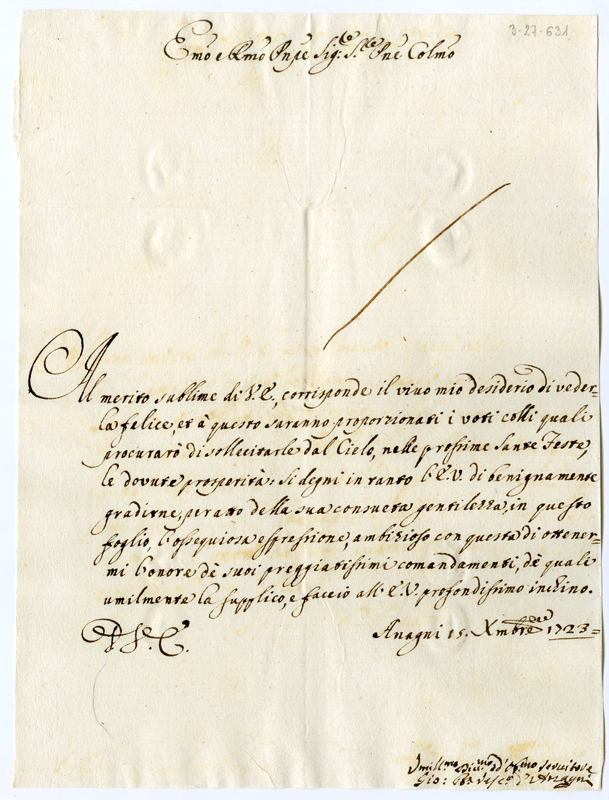 3-27-631
Emo e Rmo Pnpe Sig:re S.re Pne Colmo
Al merito sublime di V.E., corrisponde il viuo mio desiderio di veder-
la felice, et à questo saranno proporzionati i voti colli quali
procurarò di sollecitarle dal Cielo, nelle prossime Sante Feste,
le dovute prosperità: si degni in tanto l'E.V. di benignamente
gradirne, per atto della sua consueta gentilezza, in questo
foglio, l'ossequiosa espressione, ambizioso con questa di ottener-
mi l'onore dè suoi preggiatissimi comandamenti, dè quali
umilmente la supplico, e faccio all'E.V. profondissimo inchino.
D. V. E.
Anagni 15. Xmbre 1723
Umill.mo Diu.mo ed Obl.mo servitore
Gio: Bta Vesc.o d'Anagni